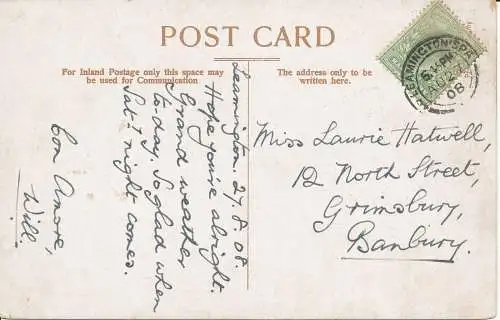 POST CARD
For Inland Postage only this space may
be used for Communication.
The address only to be
written here.
LEAMINGTON·SPA
AU 27
08
Leamington. 27.8.08.
Hope you're alright.
Grand weather
to-day. So glad when
Sat-night comes.
Con Amore,
Will.
Miss Laurie Hatwell,
12 North Street,
Grimsbury,
Banbury.